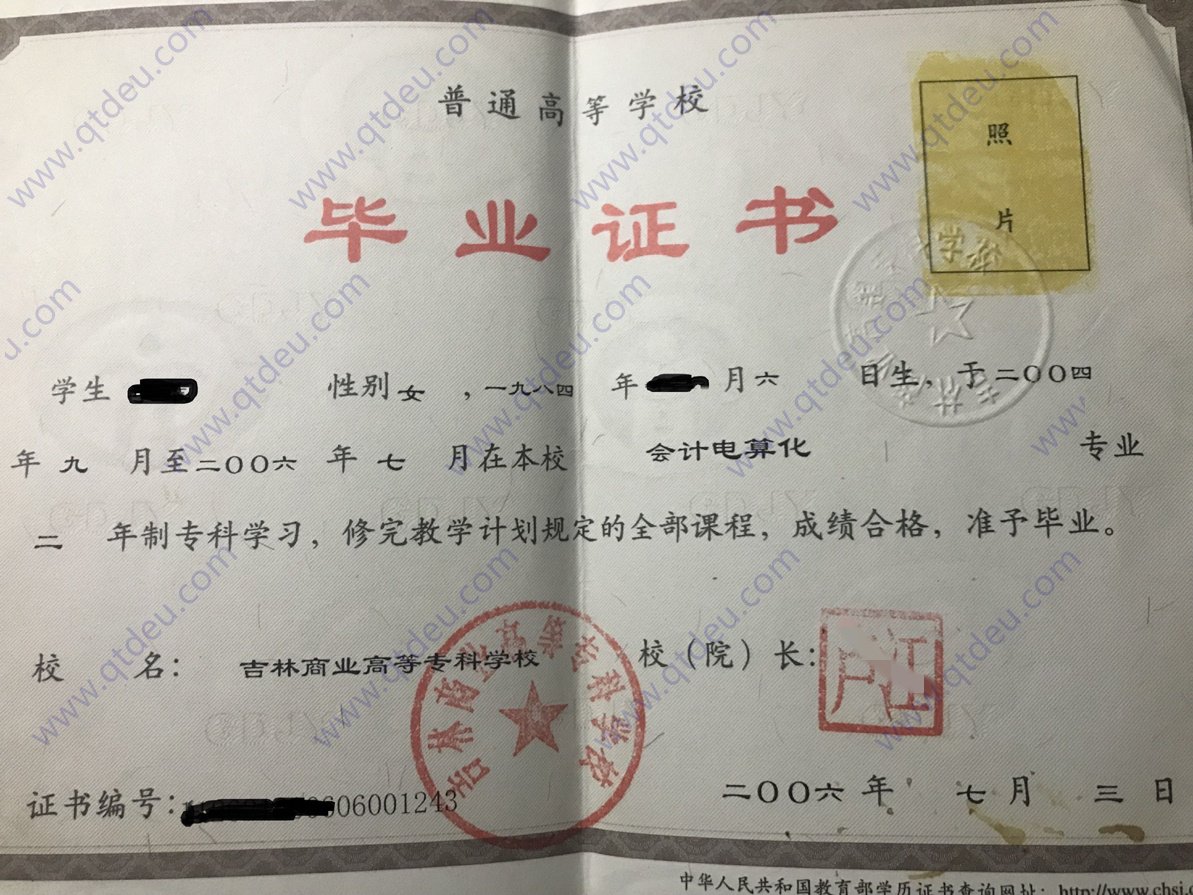 普通高等学校
毕业证书
照
片
学生 性别女，一九八四年 月六日生，于二〇〇四
年九月至二〇〇六年七月在本校会计电算化专业
二年制专科学习，修完教学计划规定的全部课程，成绩合格，准予毕业。
校名：吉林商业高等专科学校 校（院）长：
吉林商业高等专科学校
证书编号： 06001243
二〇〇六年七月三日
中华人民共和国教育部学历证书查询网址：http://www.chsi.c
www.qtdeu.com